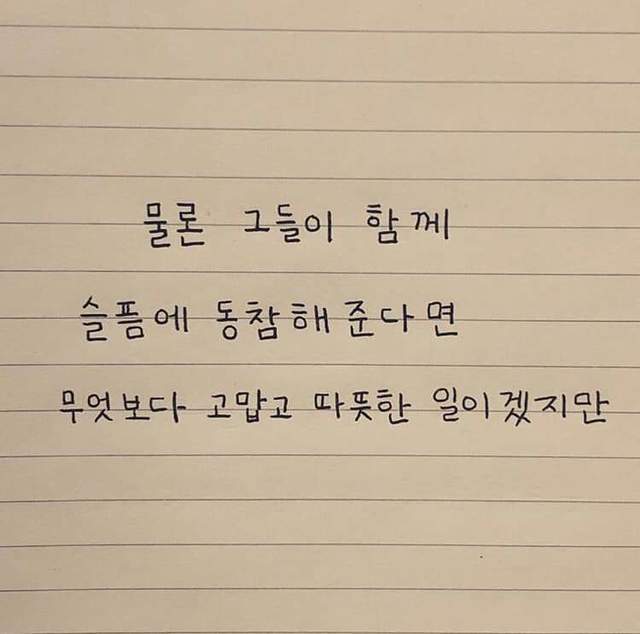 물론 그들이 함께
슬픔에 동참해 준다면
무엇보다 고맙고 따뜻한 일이겠지만